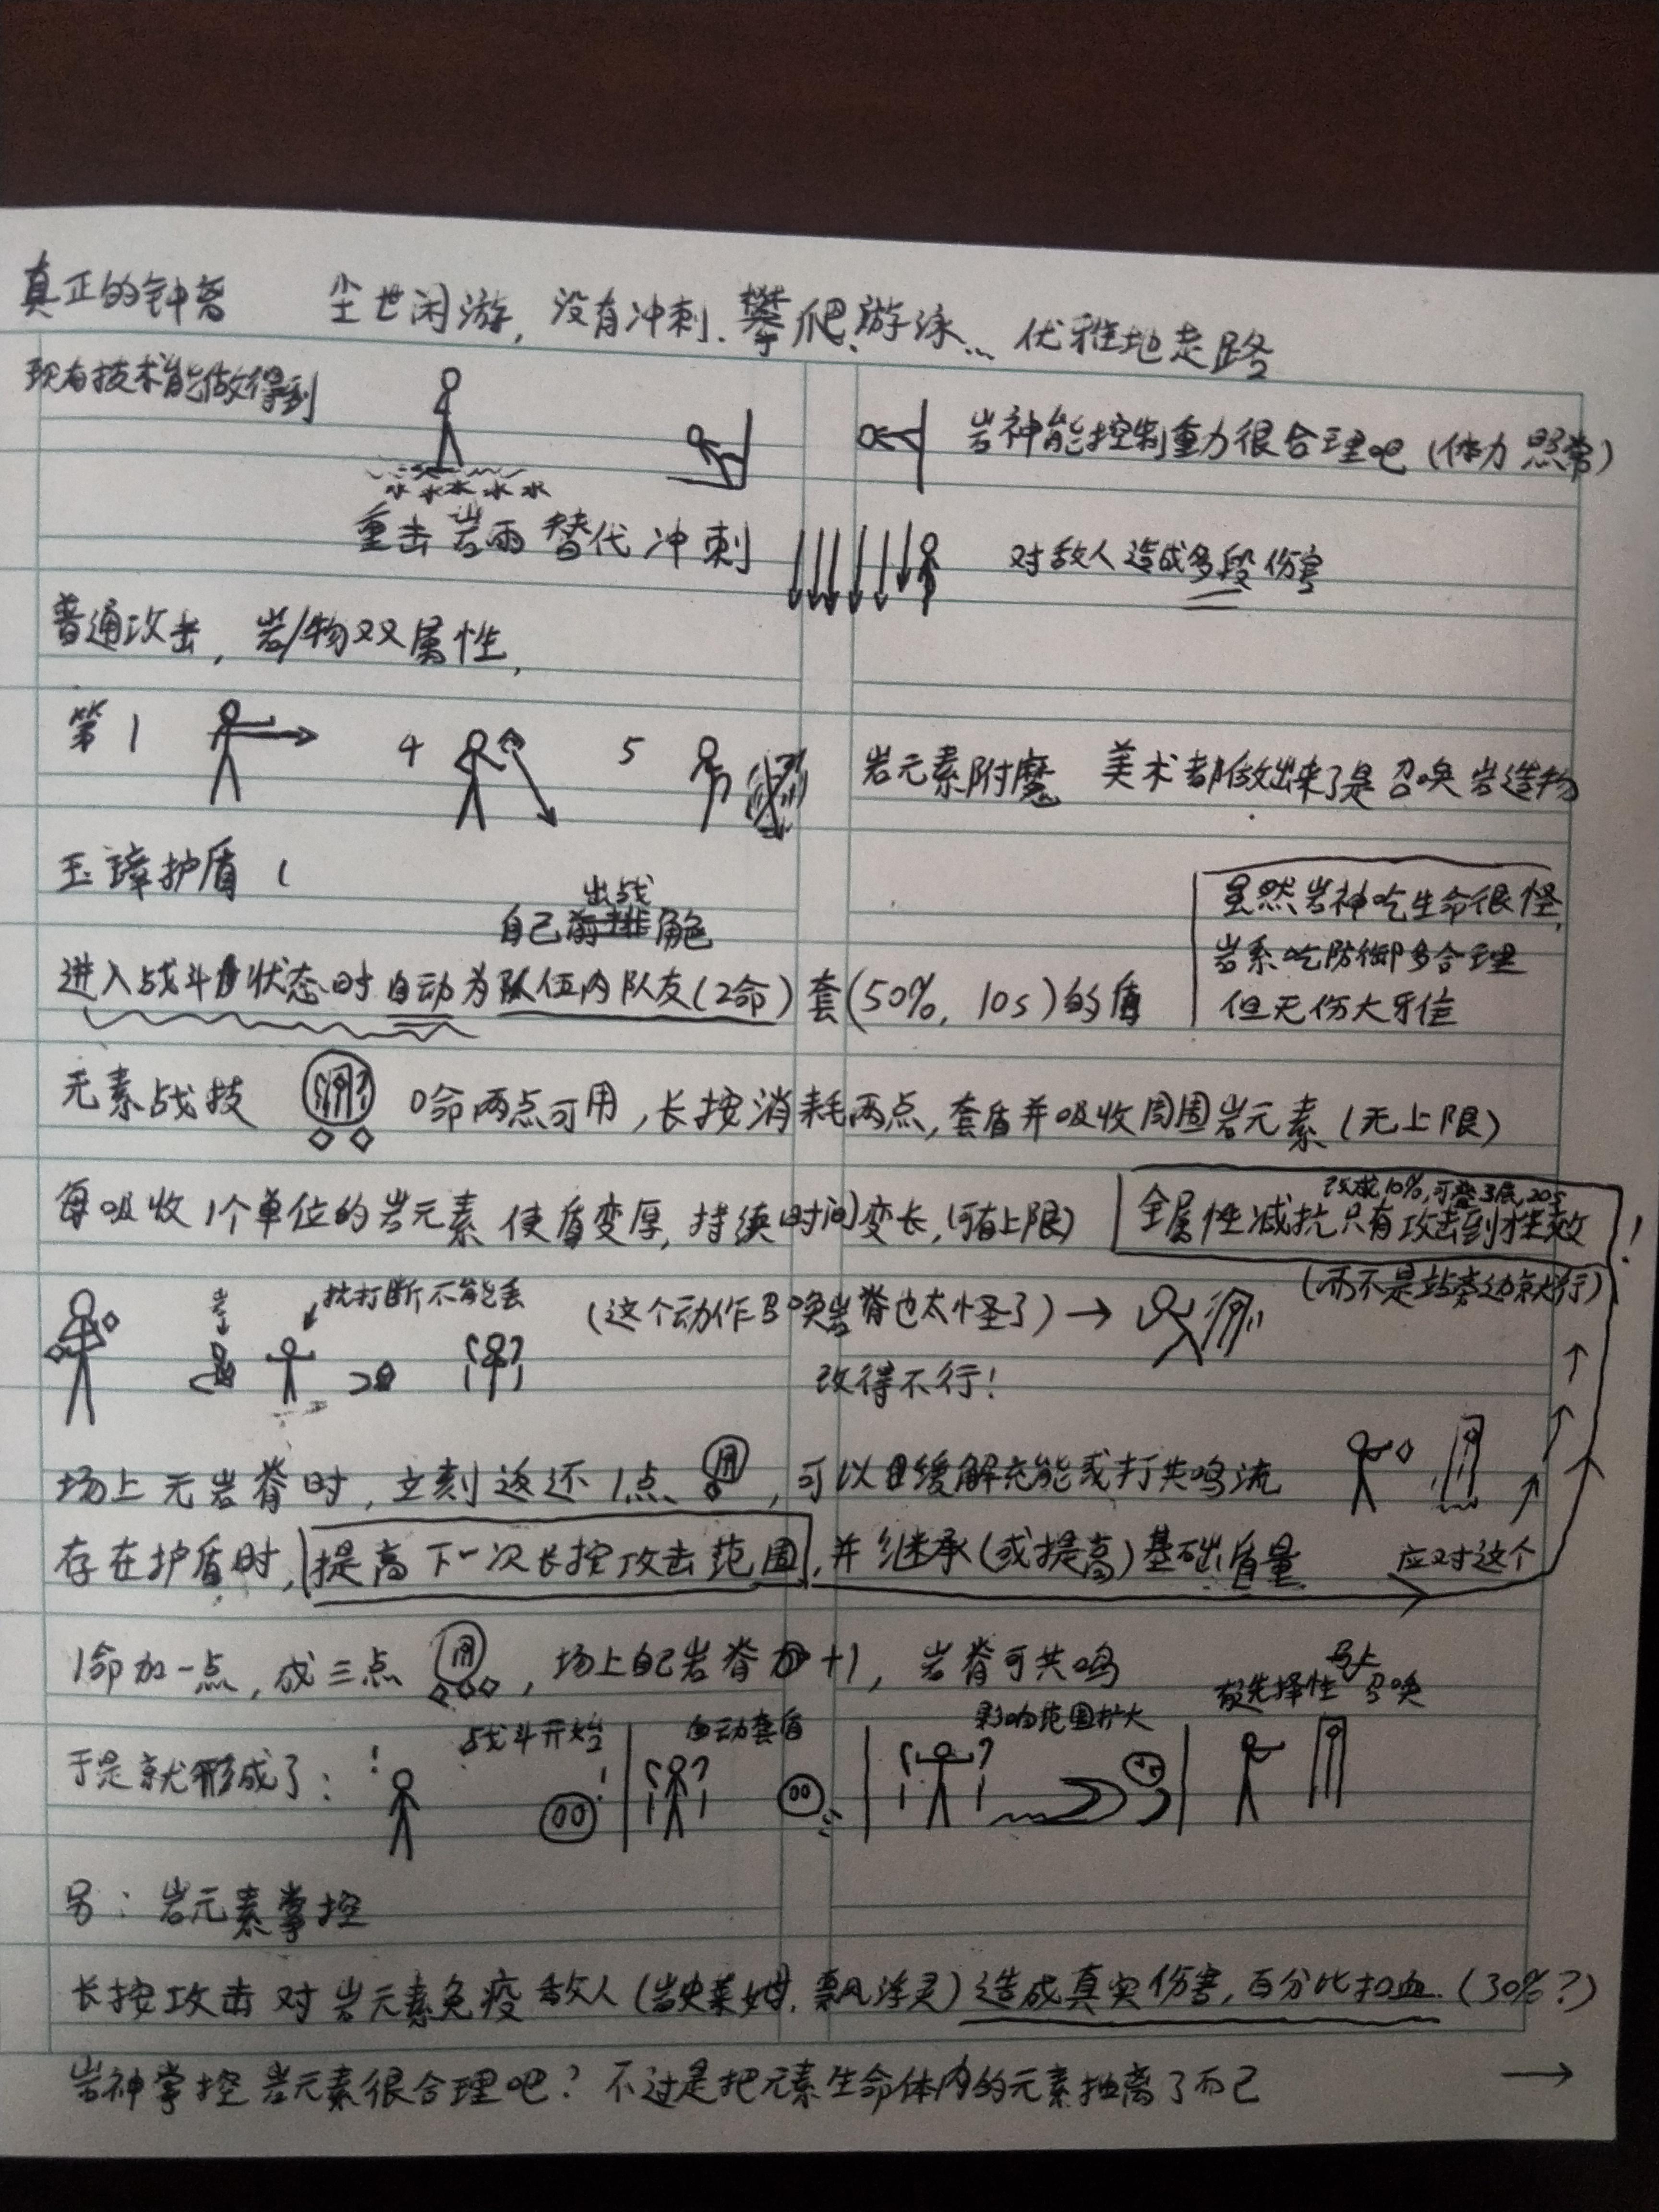 真正的钟离 尘世闲游,没有冲刺.攀爬.游泳... 优雅地走路
现有技术能做得到
岩神能控制重力很合理吧(体力照常)
重击岩雨替代冲刺 对敌人造成多段伤害
普通攻击,岩/物双属性,
第1 4 5 岩元素附魔 美术都做出来了是召唤岩造物
玉璋护盾
虽然岩神吃生命很怪,
岩系吃防御多合理
但无伤大牙佳
出战
自己角色
进入战斗状态时自动为队伍内队友(2命)套(50%,10s)的盾
元素战技 0命两点可用,长按消耗两点,套盾并吸收周围岩元素(无上限)
每吸收1个单位的岩元素使盾变厚,持续时间变长,(有上限)
改成10%,可叠3层,20s
全属性减抗只有攻击到才生效
(而不是站旁边就行)
!
岩 抗打断不能丢 (这个动作召唤岩脊也太怪了)→
改得不行!
场上无岩脊时,立刻返还1点 ,可以缓解充能或打共鸣流
存在护盾时,提高下一次长按攻击范围,并继承(或提高)基础盾量 应对这个
1命加一点,成三点 ,场上自己岩脊+1,岩脊可共鸣
于是就形成了: ! 战斗开始 ! 自动套盾 影响范围扩大 有选择性马上召唤
另:岩元素掌控
长按攻击对岩元素免疫敌人(岩史莱姆.飘浮灵)造成真实伤害,百分比扣血.(30%?)
岩神掌控岩元素很合理吧?不过是把元素生命体内的元素抽离了而已 →